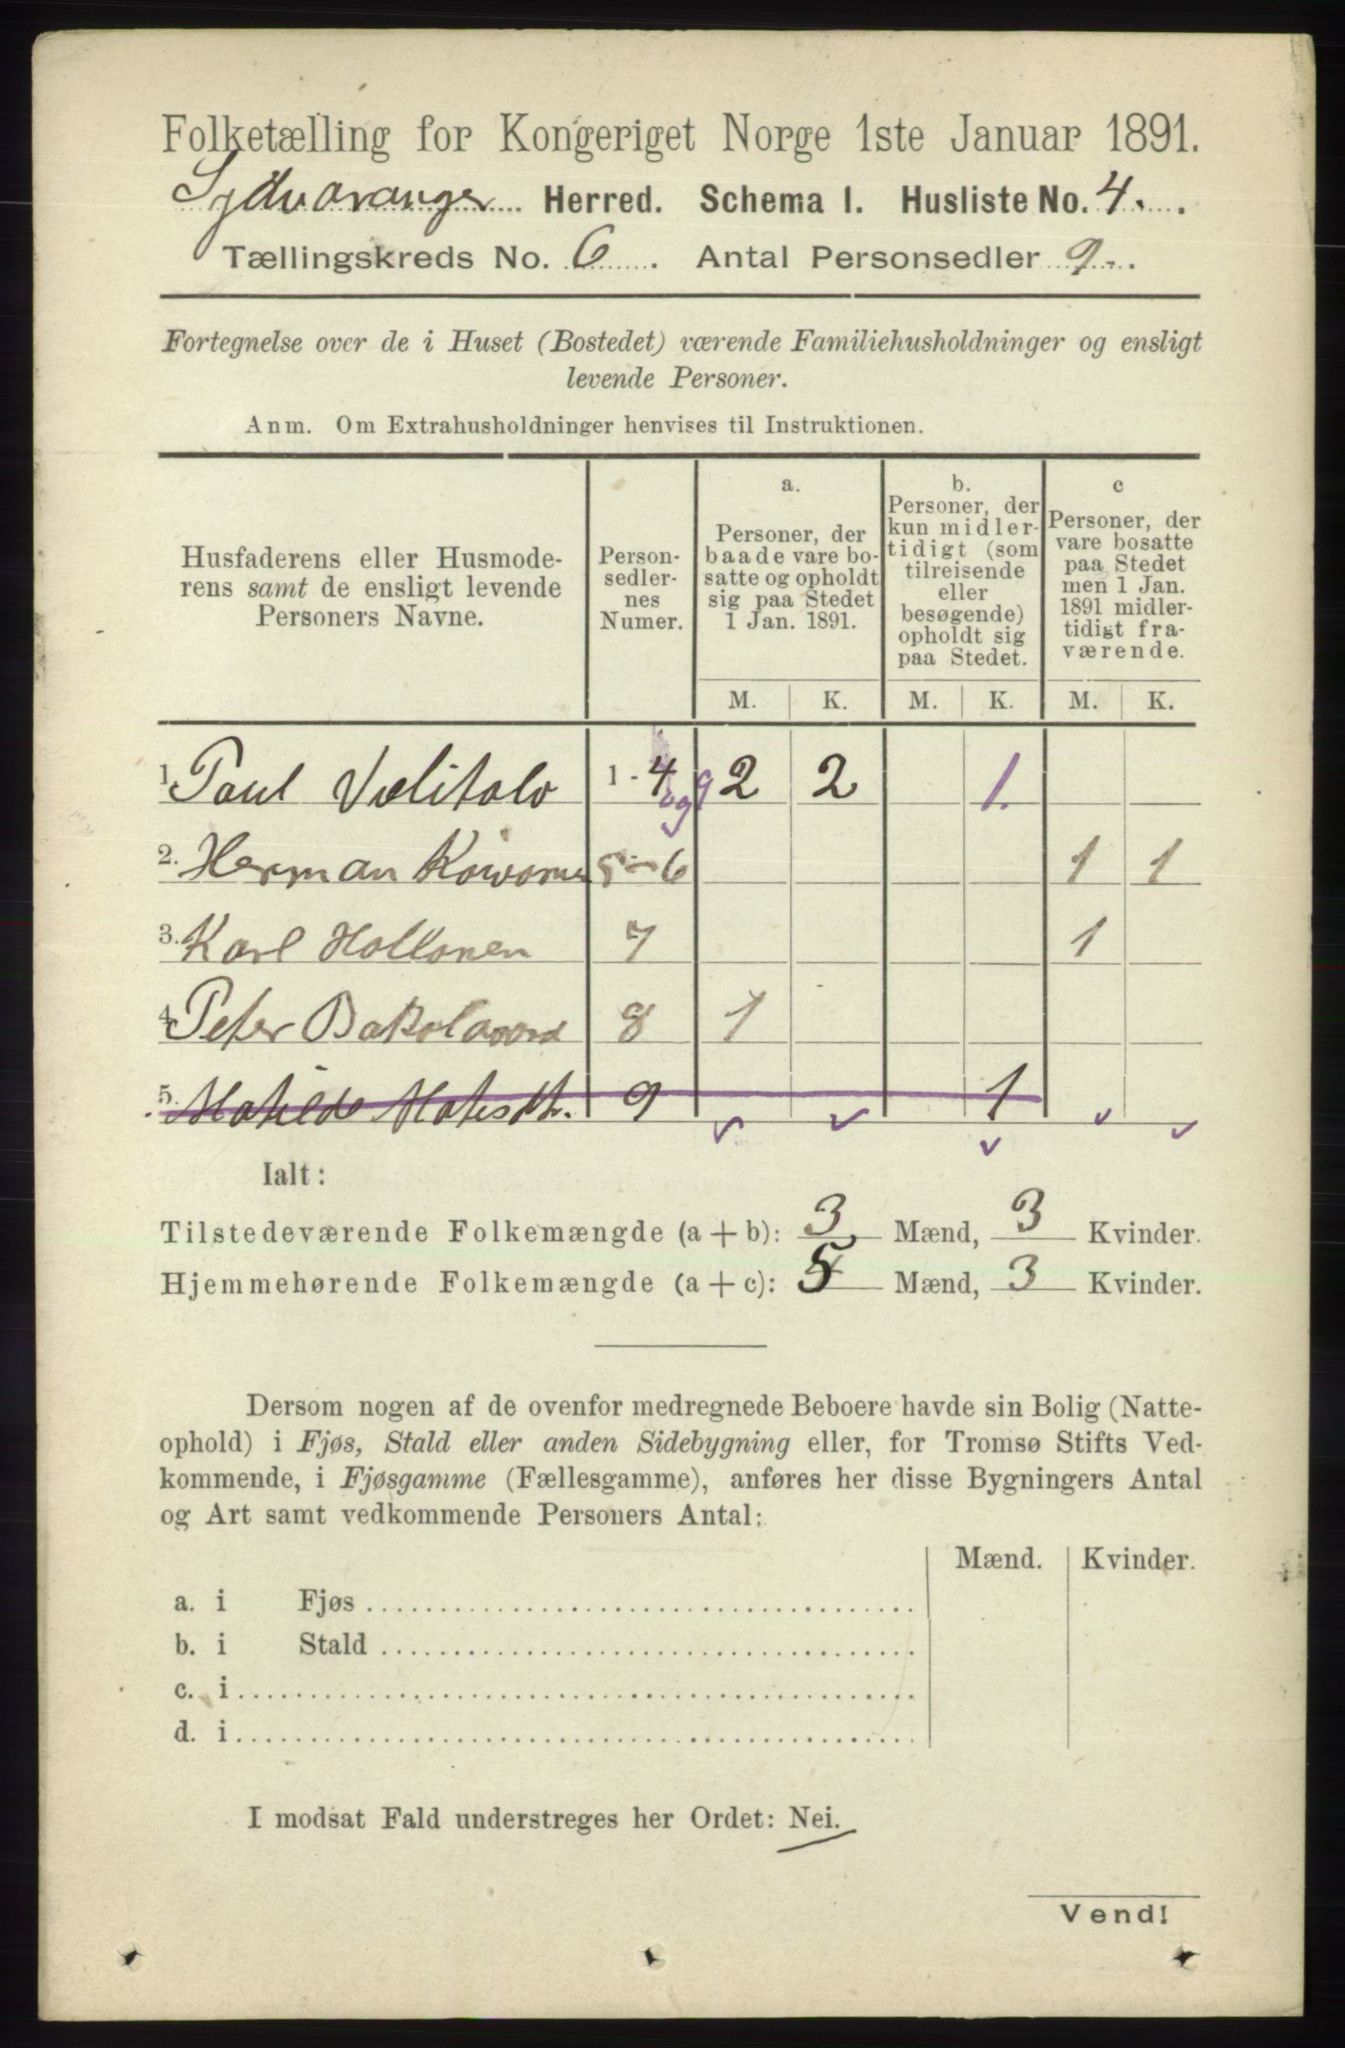 Folketælling for Kongeriget Norge 1ste Januar 1891.
Sydvaranger Herred. Schema I. Husliste No. 4.
Tællingskreds No. 6. Antal Personsedler 9.
Fortegnelse over de i Huset (Bostedet) værende Familiehusholdninger og ensligt
levende Personer.
Anm. Om Extrahusholdninger henvises til Instruktionen.
Husfaderens eller Husmode-
rens samt de ensligt levende
Personers Navne.
Person-
sedler-
nes
Numer.
a.
Personer, der
baade vare bo-
satte og opholdt
sig paa Stedet
1 Jan. 1891.
b.
Personer, der
kun midler-
tidigt (som
tilreisende
eller
besøgende)
opholdt sig
paa Stedet.
c
Personer, der
vare bosatte
paa Stedet
men 1 Jan.
1891 midler-
tidigt fra-
værende.
M. K. M. K. M. K.
1. Paul Vælitalo 1 - 4 og 9 2 2 1.
2. Herman 5-6 1 1
3. Karl 7 1
4. Peter 8 1
5. Matilde 9 1
Ialt:
Tilstedeværende Folkemængde (a + b): 3 Mænd, 3 Kvinder.
Hjemmehørende Folkemængde (a + c): 5 Mænd, 3 Kvinder.
Dersom nogen af de ovenfor medregnede Beboere havde sin Bolig (Natte-
ophold) i Fjøs, Stald eller anden Sidebygning eller, for Tromsø Stifts Ved-
kommende, i Fjøsgamme (Fællesgamme), anføres her disse Bygningers Antal
og Art samt vedkommende Personers Antal:
Mænd. Kvinder.
a. i Fjøs
b. i Stald
c. i
d. i
I modsat Fald understreges her Ordet: Nei.
Vend!